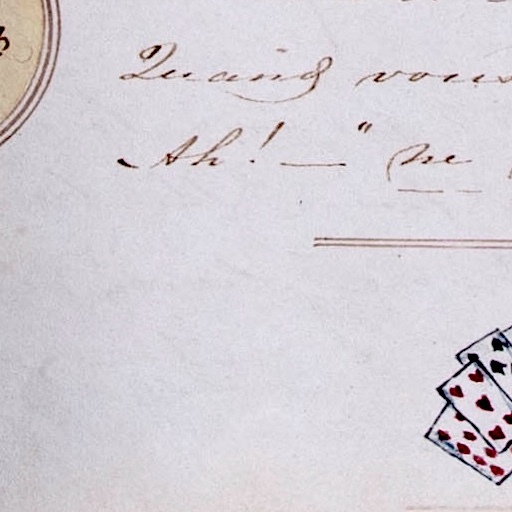 Quand vous
Ah! — " ne